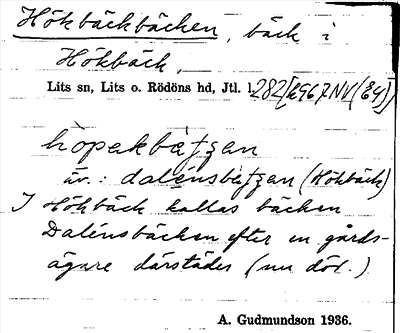 Hökbäckbäcken, bäck i
Hökbäck,
Lits sn, Lits o. Rödöns hd, Jtl. l.
hopakbètʃen
äv.: dalénsbètʃen (Hökbäck)
I Hökbäck kallas bäcken
Dalénsbäcken efter en gårds-
ägare därstädes (nu död.)
A. Gudmundson 1936.